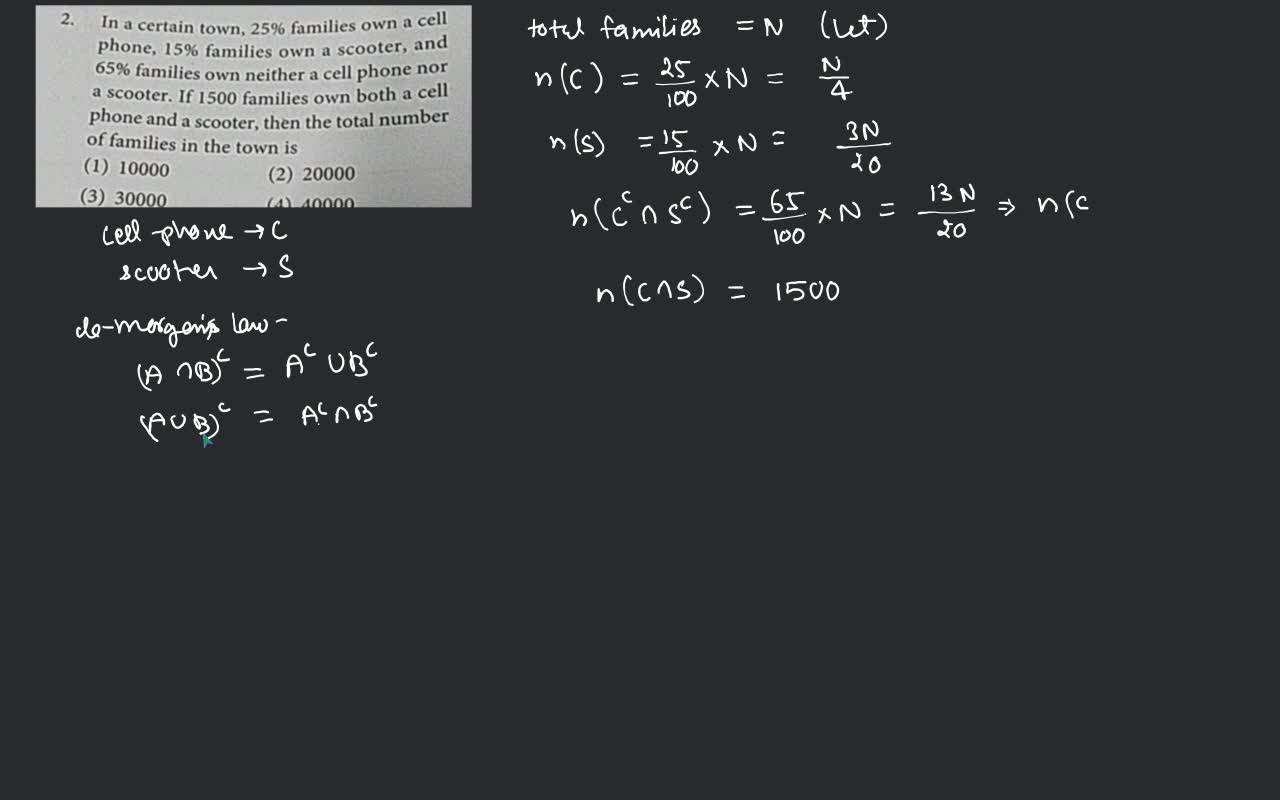 2. In a certain town, 25% families own a cell
phone, 15% families own a scooter, and
65% families own neither a cell phone nor
a scooter. If 1500 families own both a cell
phone and a scooter, then the total number
of families in the town is
(1) 10000 (2) 20000
(3) 30000 (4) 40000
cell phone → C
scooter → S
de-morgan's law -
(A ∩ B)ᶜ = Aᶜ ∪ Bᶜ
(A ∪ B)ᶜ = Aᶜ ∩ Bᶜ
total families = N (let)
n(C) = 25/100 × N = N/4
n(S) = 15/100 × N = 3N/20
n(Cᶜ ∩ Sᶜ) = 65/100 × N = 13N/20 ⇒ n(C
n(C ∩ S) = 1500